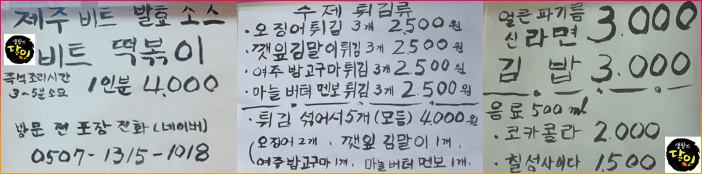 제주 비트 발효 소스
비트 떡볶이
즉석조리시간
3~5분소요
1인분 4,000
방문 전 포장 전화 (네이버)
0507-1315-1018
수제 튀김류
· 오징어튀김 3개 2,500원
· 깻잎김말이튀김 3개 2500원
· 여주밤고구마튀김 3개 2500원
· 마늘버터멘보튀김 3개 2500원
· 튀김 섞어서5개 (모듬) 4,000원
(오징어 2개 . 깻잎 김말이 1개.
여주밤고구마 1개. 마늘버터멘보 1개.
얼큰파기름
신라면 3.000
김밥 3.000
음료 500ml
· 코카콜라 2.000
· 칠성사이다 1.500
생활의
달인
생활의
달인